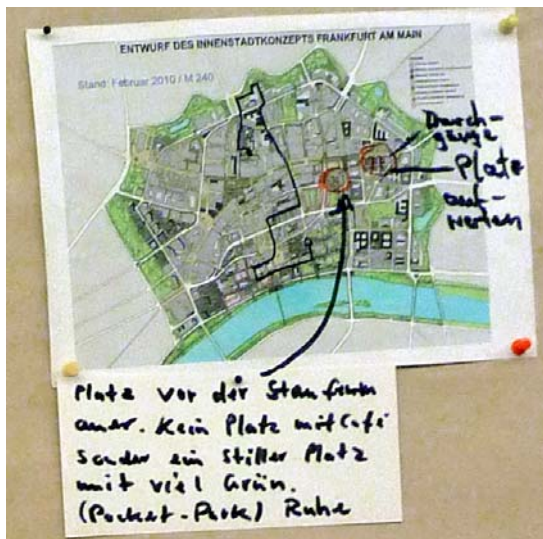 ENTWURF DES INNENSTADTKONZEPTS FRANKFURT AM MAIN
Stand: Februar 2010 / M 240
Durch-
gänge
Platz
auf-
werten
Platz vor der Staufen
auer. Kein Platz mit Café
sonder ein stiller Platz
mit viel Grün.
(Pocket-Park) Ruhe